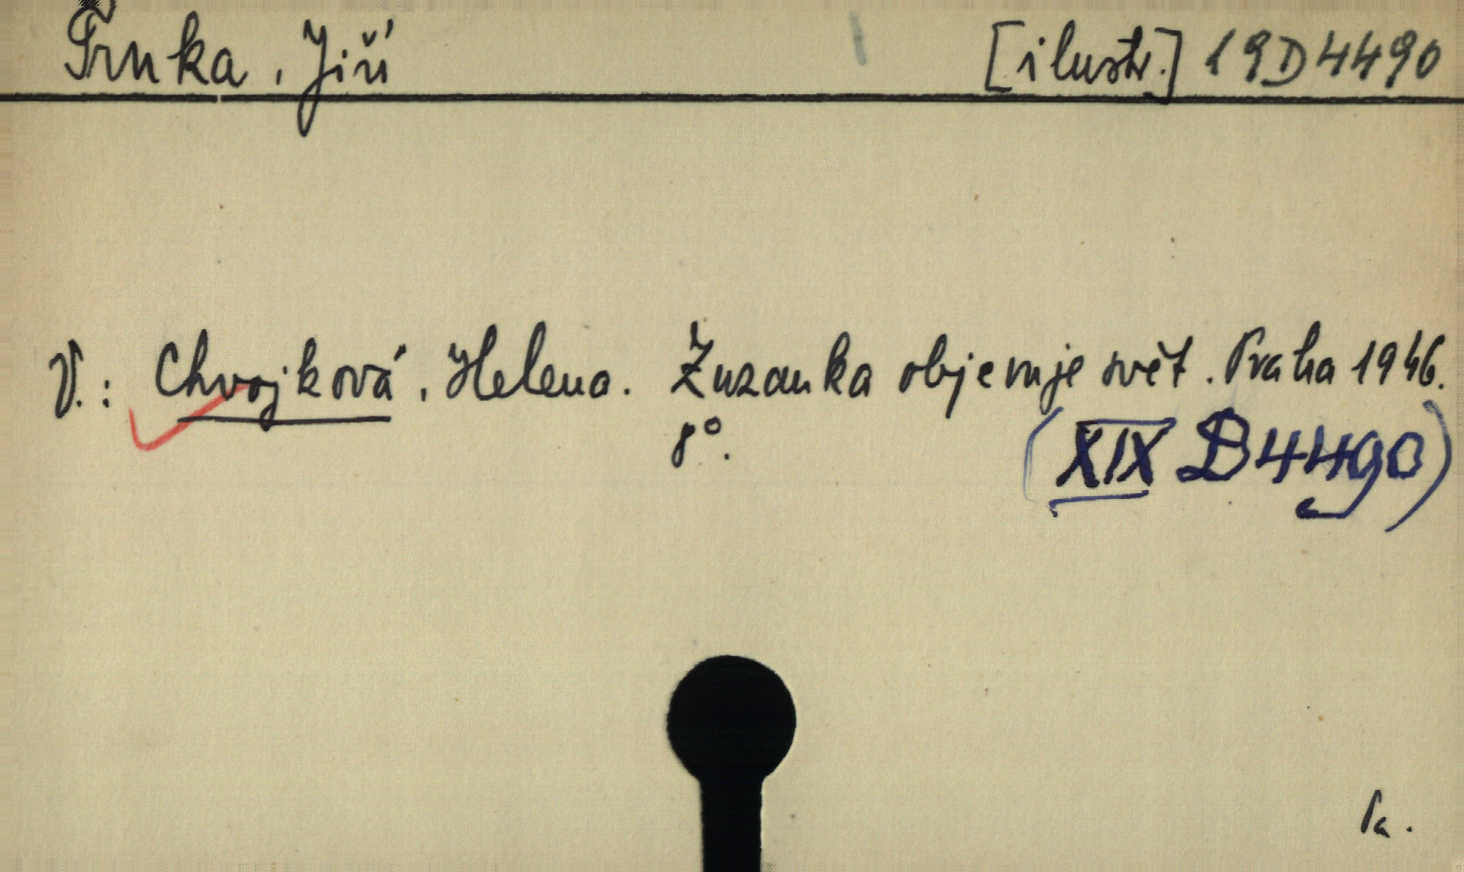 Trnka, Jiří [ilustr.] 19D4490
V.: Chvojková, Helena. Zuzanka objevuje svět. Praha 1946.
8°. (XIX D 4490)